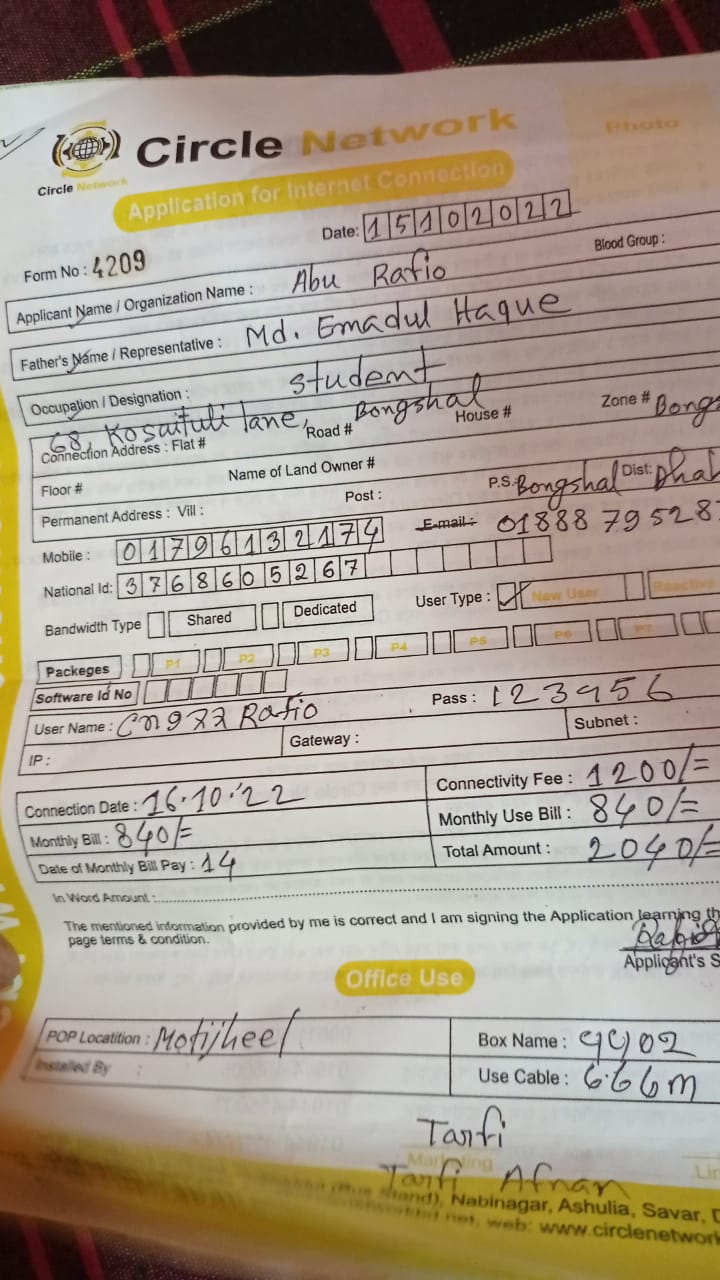 Circle Network
Photo
Circle Network
Application for Internet Connection
Date: 15102022
Form No : 4209
Blood Group :
Applicant Name / Organization Name : Abu Rafio
Father's Name / Representative : Md. Emadul Haque
Occupation / Designation : student
68, Kosaituli lane, Bongshal
Connection Address : Flat # Road # House # Zone # Bongs
Floor # Name of Land Owner #
Permanent Address : Vill : Post : P.S: Bongshal Dist: Dhak
Mobile : 01796132174 E-mail : 01888 79528
National Id: 3768605267
Bandwidth Type Shared Dedicated User Type : New User Reactive
Packeges P1 P2 P3 P4 P5 P6 P7
Software Id No
User Name : Rafio Pass : 123456
IP : Gateway : Subnet :
Connection Date : 16.10.'22 Connectivity Fee : 1200/=
Monthly Bill : 840/= Monthly Use Bill : 840/=
Date of Monthly Bill Pay : 14 Total Amount : 2040/=
In Word Amount :
The mentioned information provided by me is correct and I am signing the Application learning th
page terms & condition.
Applicant's S
Office Use
POP Locatition : Motijheel Box Name :
Installed By : Use Cable : 666m
Tarfi
Marketing
Tarfi Afnan
Stand), Nabinagar, Ashulia, Savar, D
net, web: www.circlenetwork